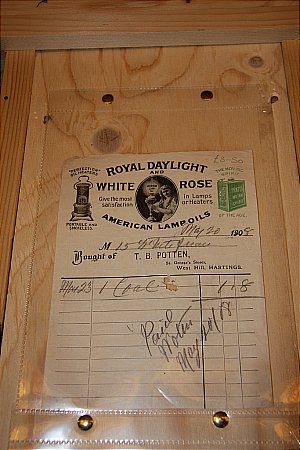 £3-50
"PERFECTION" OIL HEATERS
PORTABLE AND SMOKELESS.
ROYAL DAYLIGHT
AND
WHITE ROSE
Give the most satisfaction
in Lamps or Heaters
AMERICAN LAMP OILS
THE MOTOR SPIRIT
OF THE AGE.
May 20 1908
M 15
Bought of T. B. POTTEN,
St. George's Stores,
West Hill, HASTINGS.
Mar 23 1 Coal 1 8
Paid
Potten
May 20/08